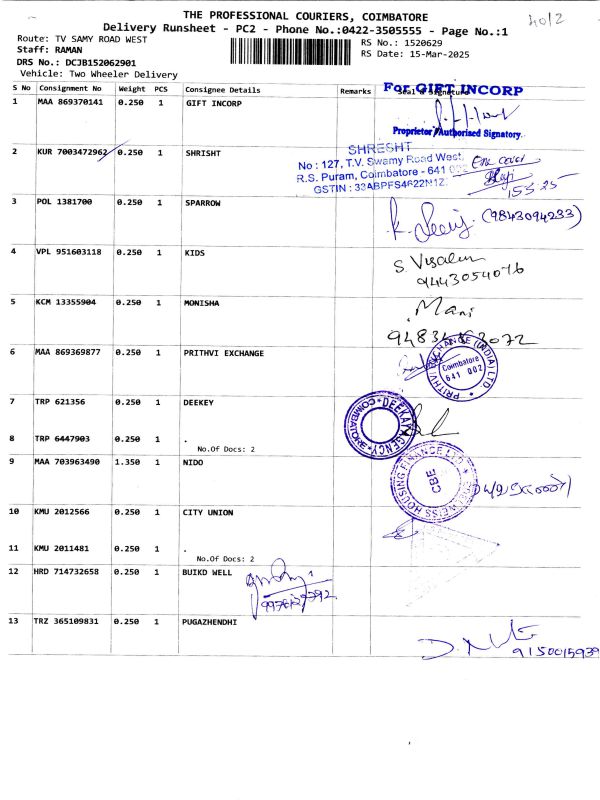 THE PROFESSIONAL COURIERS, COIMBATORE
40/2
Delivery Runsheet - PC2 - Phone No.:0422-3505555 - Page No.:1
Route: TV SAMY ROAD WEST
RS No.: 1520629
Staff: RAMAN
RS Date: 15-Mar-2025
DRS No.: DCJB152062901
Vehicle: Two Wheeler Delivery
S No Consignment No Weight PCS Consignee Details Remarks Seal & Signature
For GIFT INCORP
1 MAA 869370141 0.250 1 GIFT INCORP
Proprietor / Authorised Signatory.
2 KUR 7003472962 0.250 1 SHRISHT
SHRESHT
No : 127, T.V. Swamy Road West,
R.S. Puram, Coimbatore - 641 002
GSTIN : 33ABPFS4622N1Z
One cover
15.3.25
3 POL 1381700 0.250 1 SPARROW
(9843094233)
4 VPL 951603118 0.250 1 KIDS
S. Visalim
9443054076
5 KCM 13355904 0.250 1 MONISHA
Mani
6 MAA 869369877 0.250 1 PRITHVI EXCHANGE
PRITHVI EXCHANGE (INDIA) LTD
Coimbatore
641 002
7 TRP 621356 0.250 1 DEEKEY
DEEKAY AGENCY
COIMBATORE
8 TRP 6447903 0.250 1 .
No.Of Docs: 2
9 MAA 703963490 1.350 1 NIDO
HOUSING FINANCE LTD
CBE
10 KMU 2012566 0.250 1 CITY UNION
11 KMU 2011481 0.250 1 .
No.Of Docs: 2
12 HRD 714732658 0.250 1 BUIKD WELL
13 TRZ 365109831 0.250 1 PUGAZHENDHI
9150015939